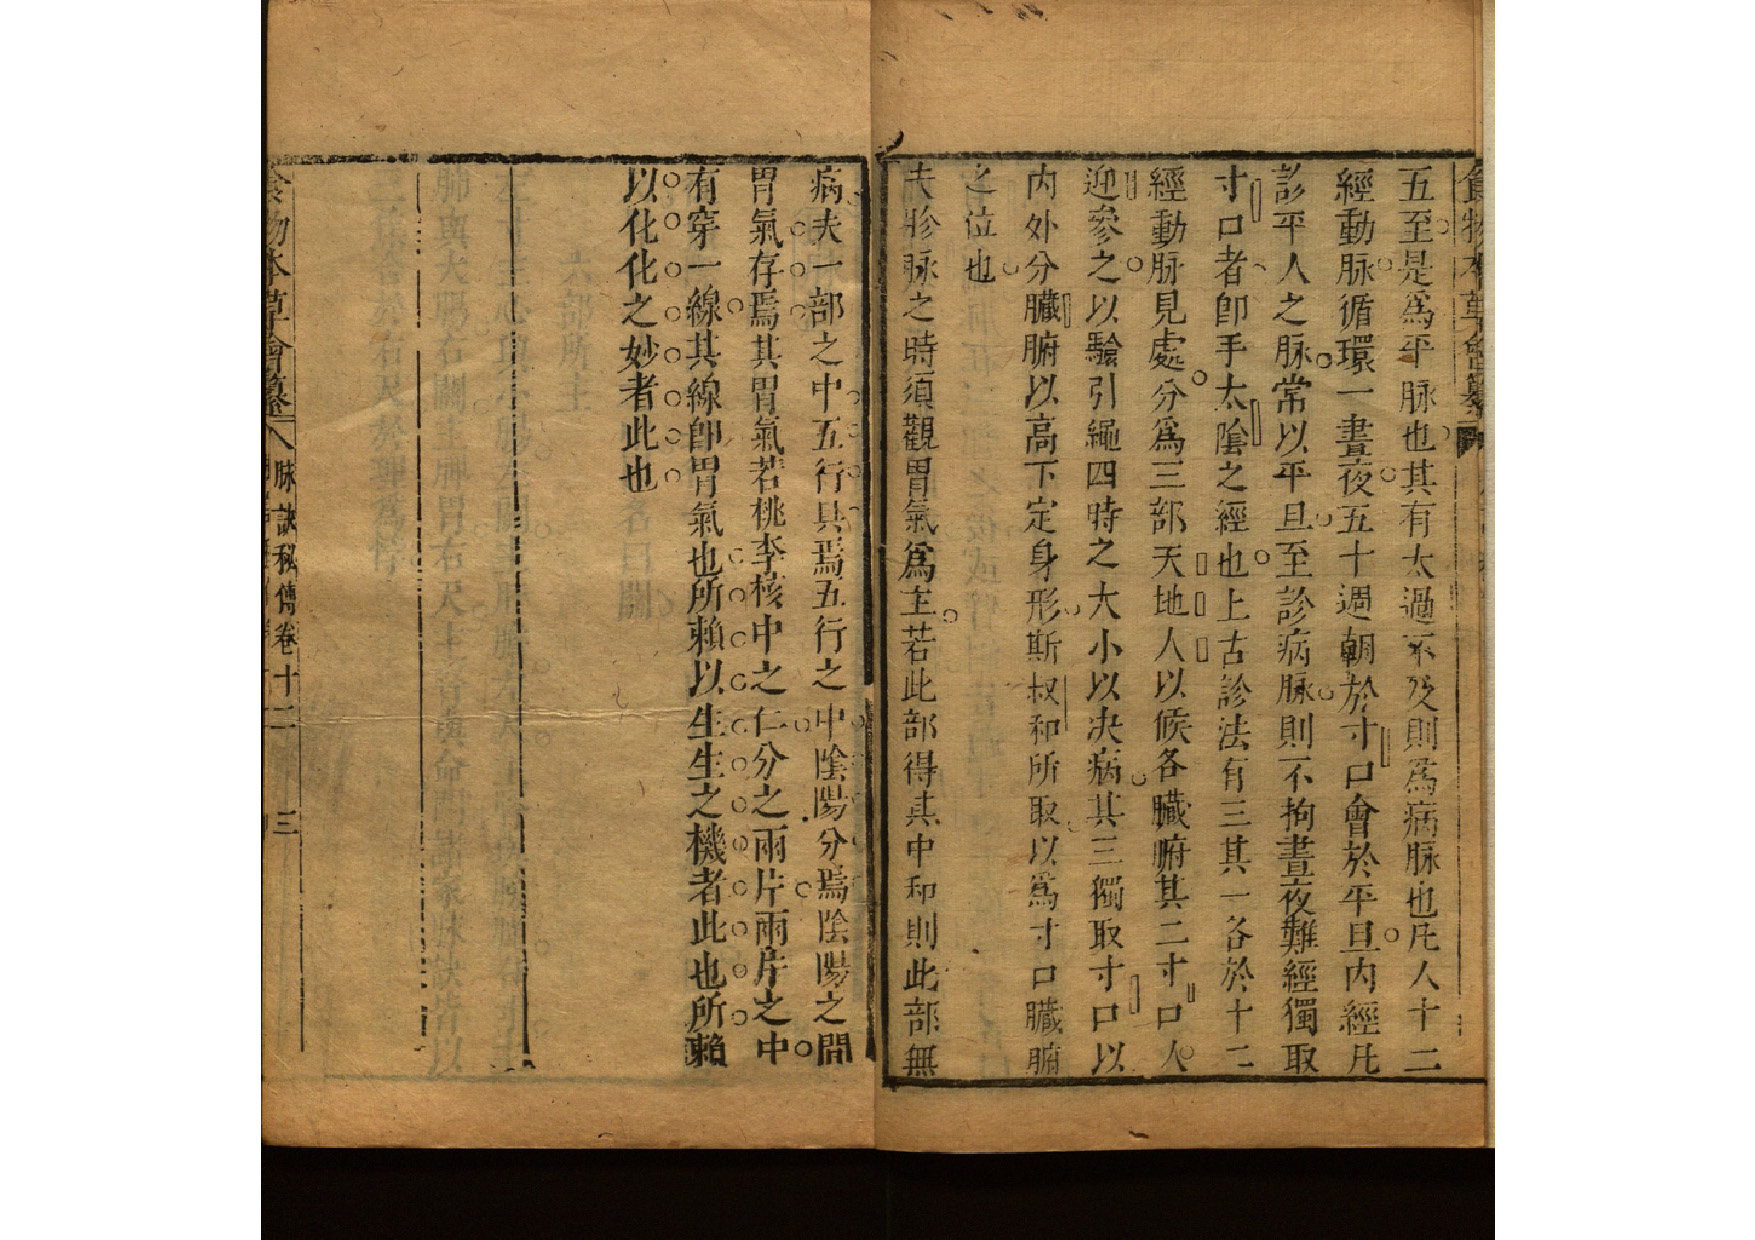 五至是爲平脉也其有太過不及則爲病脉也凡人十二
經動脉循環一晝夜五十週朝於寸口會於平旦內經凡
診平人之脉常以平旦至診病脉則不拘晝夜難經獨取
寸口者卽手太陰之經也上古診法有三其一各於十二
經動脉見處分爲三部天地人以候各臟腑其二寸口人
迎參之以驗引繩四時之大小以决病其三獨取寸口以
內外分臟腑以高下定身形斯叔和所取以爲寸口臟腑
之位也
夫胗脉之時須觀胃氣爲主若此部得其中和則此部無
病夫一部之中五行具焉五行之中陰陽分焉陰陽之間
胃氣存焉其胃氣若桃李核中之仁分之兩片兩片之中
有穿一線其線卽胃氣也所賴以生生之機者此也所賴
以化化之妙者此也
食物本草會纂 八 脉訣秘傳卷十二 三